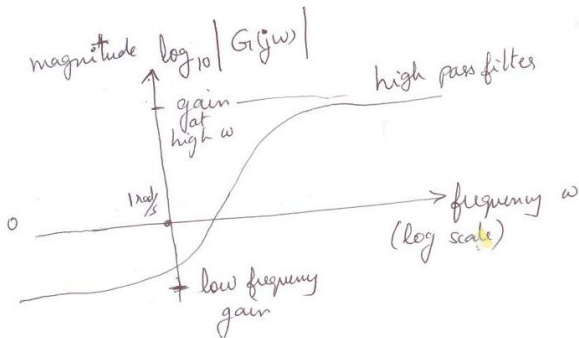 magnitude log10 |G(jω)|
high pass filter
gain
at
high ω
1 rad/s
0
frequency ω
(log scale)
low frequency
gain